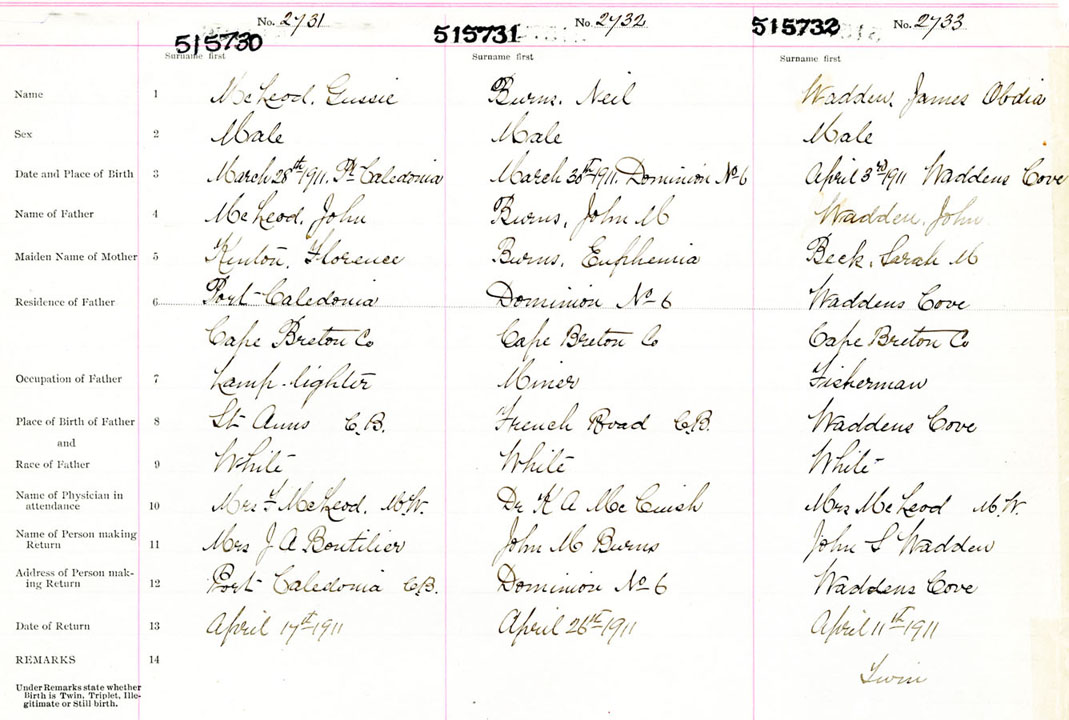 No. 2731 No. 2732 No. 2733
515730 515731 515732
Surname first Surname first Surname first
Name 1 McLeod, Gussie Burns, Neil Wadden, James Obdia
Sex 2 Male Male Male
Date and Place of Birth 3 March 28th 1911. Pt Caledonia March 30th 1911. Dominion No 6 April 3rd 1911 Waddens Cove
Name of Father 4 McLeod, John Burns, John M Wadden, John
Maiden Name of Mother 5 Kinton, Florence Burns, Euphemia Beck, Sarah M
Residence of Father 6 Port Caledonia Dominion No 6 Waddens Cove
Cape Breton Co Cape Breton Co Cape Breton Co
Occupation of Father 7 Lamp-lighter Miner Fisherman
Place of Birth of Father 8 St Anns C.B. French Road C.B. Waddens Cove
and
Race of Father 9 White White White
Name of Physician in
attendance 10 Mrs F McLeod, M.W. Dr K A McCuish Mrs McLeod M.W.
Name of Person making
Return 11 Mrs J A Boutilier John M Burns John S Wadden
Address of Person mak-
ing Return 12 Port Caledonia C.B. Dominion No 6 Waddens Cove
Date of Return 13 April 17th 1911 April 26th 1911 April 11th 1911
REMARKS 14 Twin
Under Remarks state whether
Birth is Twin, Triplet, Ille-
gitimate or Still birth.